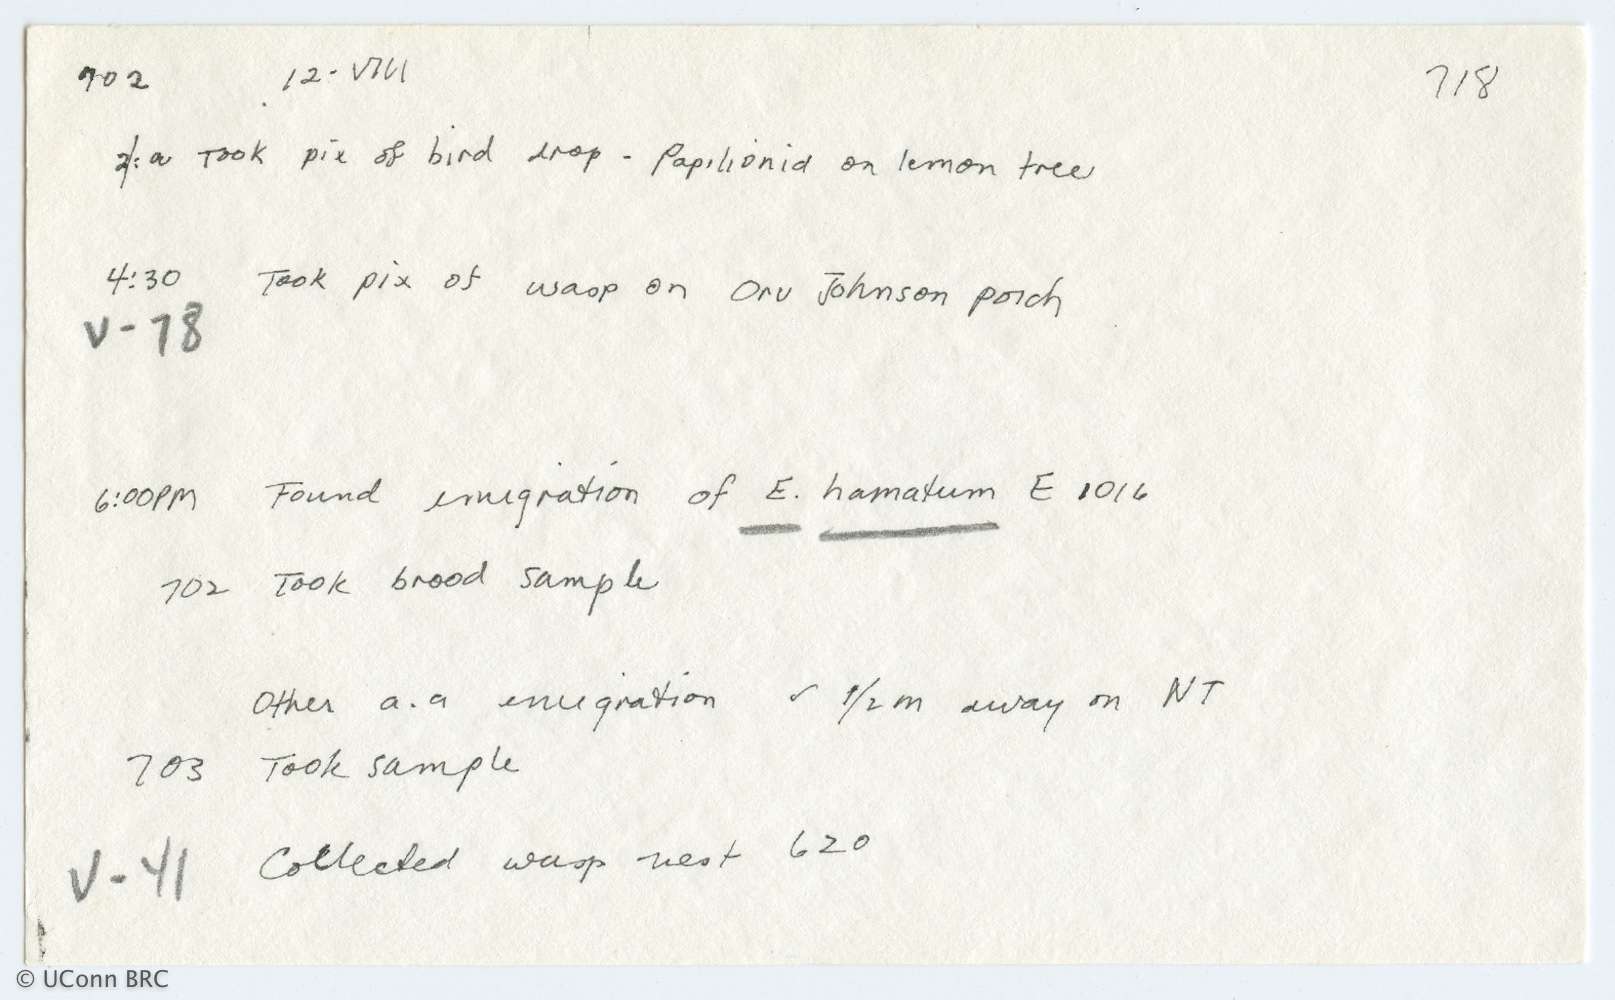 702 12-VIII 718
Took pix of bird drop - Papilionid on lemon tree
4:30 Took pix of wasp on Orv Johnson porch
V-78
6:00PM Found emigration of E. hamatum E 1016
702 Took brood sample
Other a.a emigration 1/2 m away on NT
703 Took sample
V-41 Collected wasp nest 620
© UConn BRC